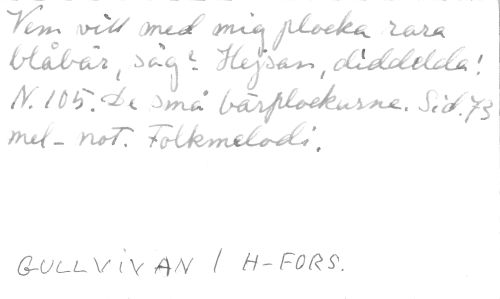 Vem vill med mig plocka rara
blåbär, säg? Hejsan, diddelda!
N. 105. De små bärplockarna. Sid. 73
mel- not. Folkmelodi.
GULLVIVAN / H-FORS.